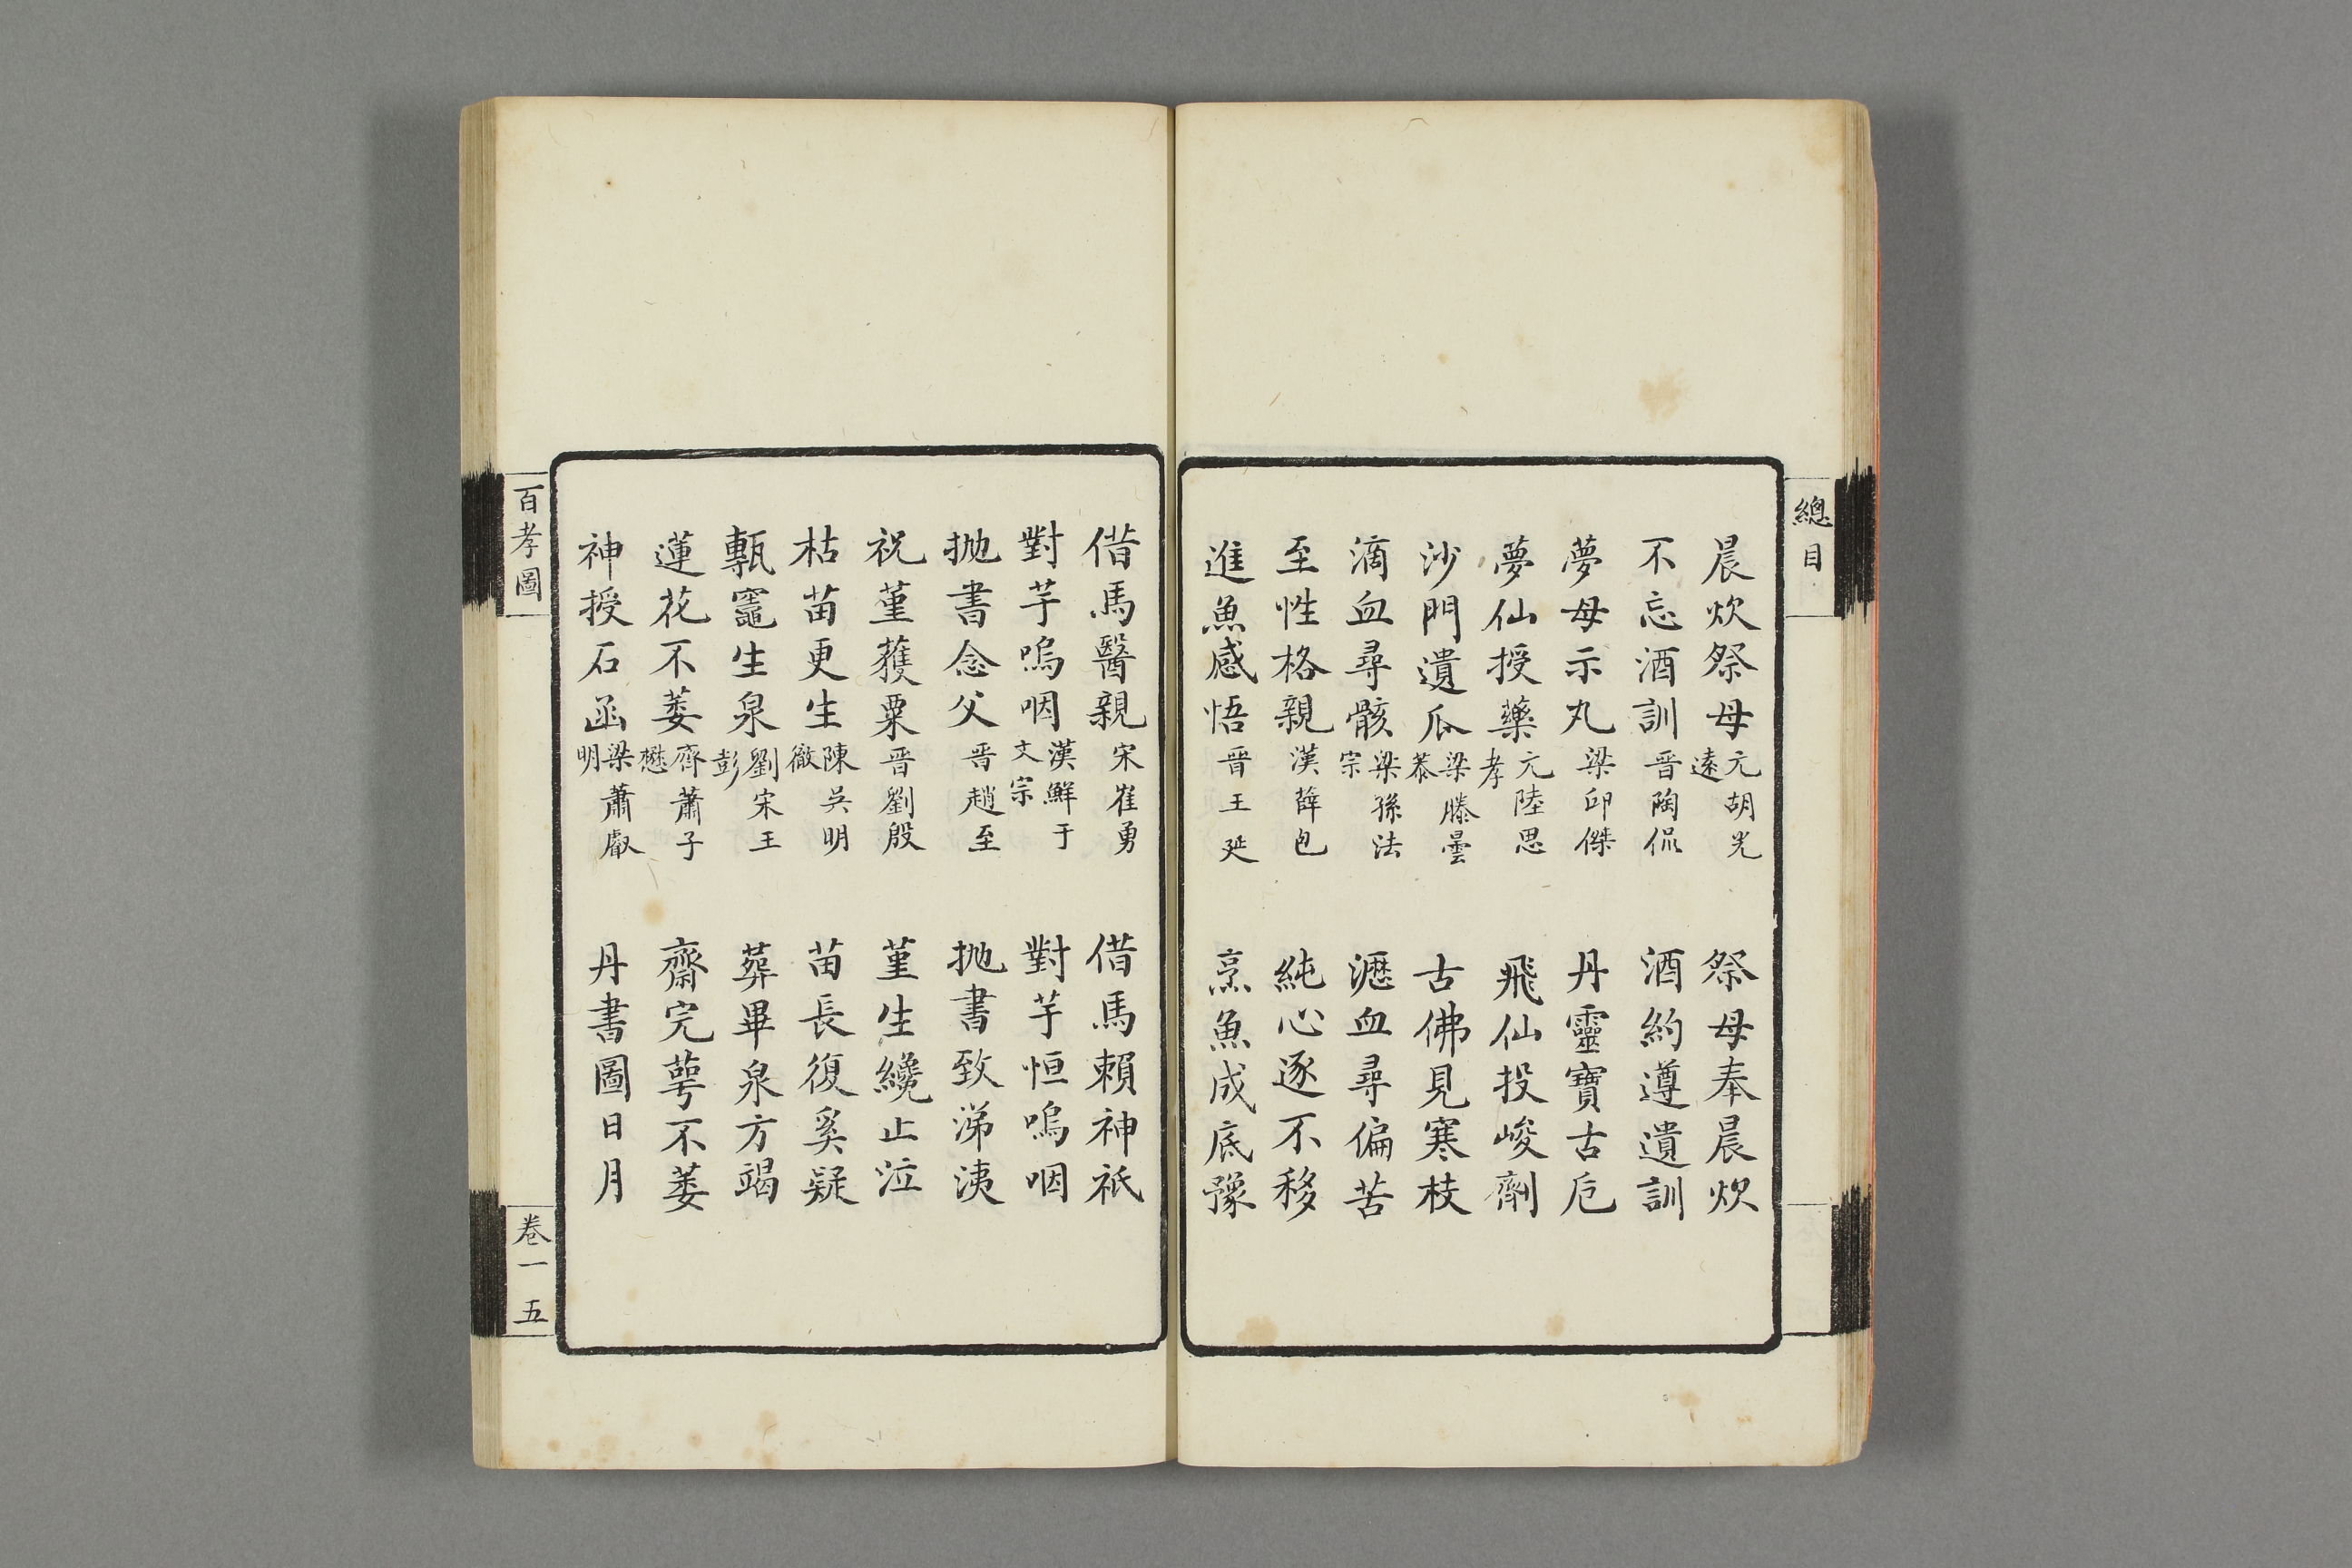 總目
晨炊祭母元胡光遠 祭母奉晨炊
不忘酒訓晋陶侃 酒約遵遺訓
夢母示丸梁卬傑 丹靈寶古卮
夢仙授藥元陸思孝 飛仙投峻劑
沙門遺瓜梁滕曇恭 古佛見寒枝
滴血尋骸梁孫法宗 瀝血尋偏苦
至性格親漢薛包 純心逐不移
進魚感悟晋王延 烹魚成底豫
借馬醫親宋崔勇 借馬賴神祇
對芋嗚咽漢鮮于文宗 對芋恒嗚咽
拋書念父晋趙至 拋書致涕洟
祝堇獲粟晋劉殷 堇生纔止泣
枯苗更生陳吳明徹 苗長復奚疑
甎竈生泉劉宋王彭 葬畢泉方竭
蓮花不萎齊蕭子懋 齋完萼不萎
神授石函梁蕭叡明 丹書圖日月
百孝圖
卷一 五